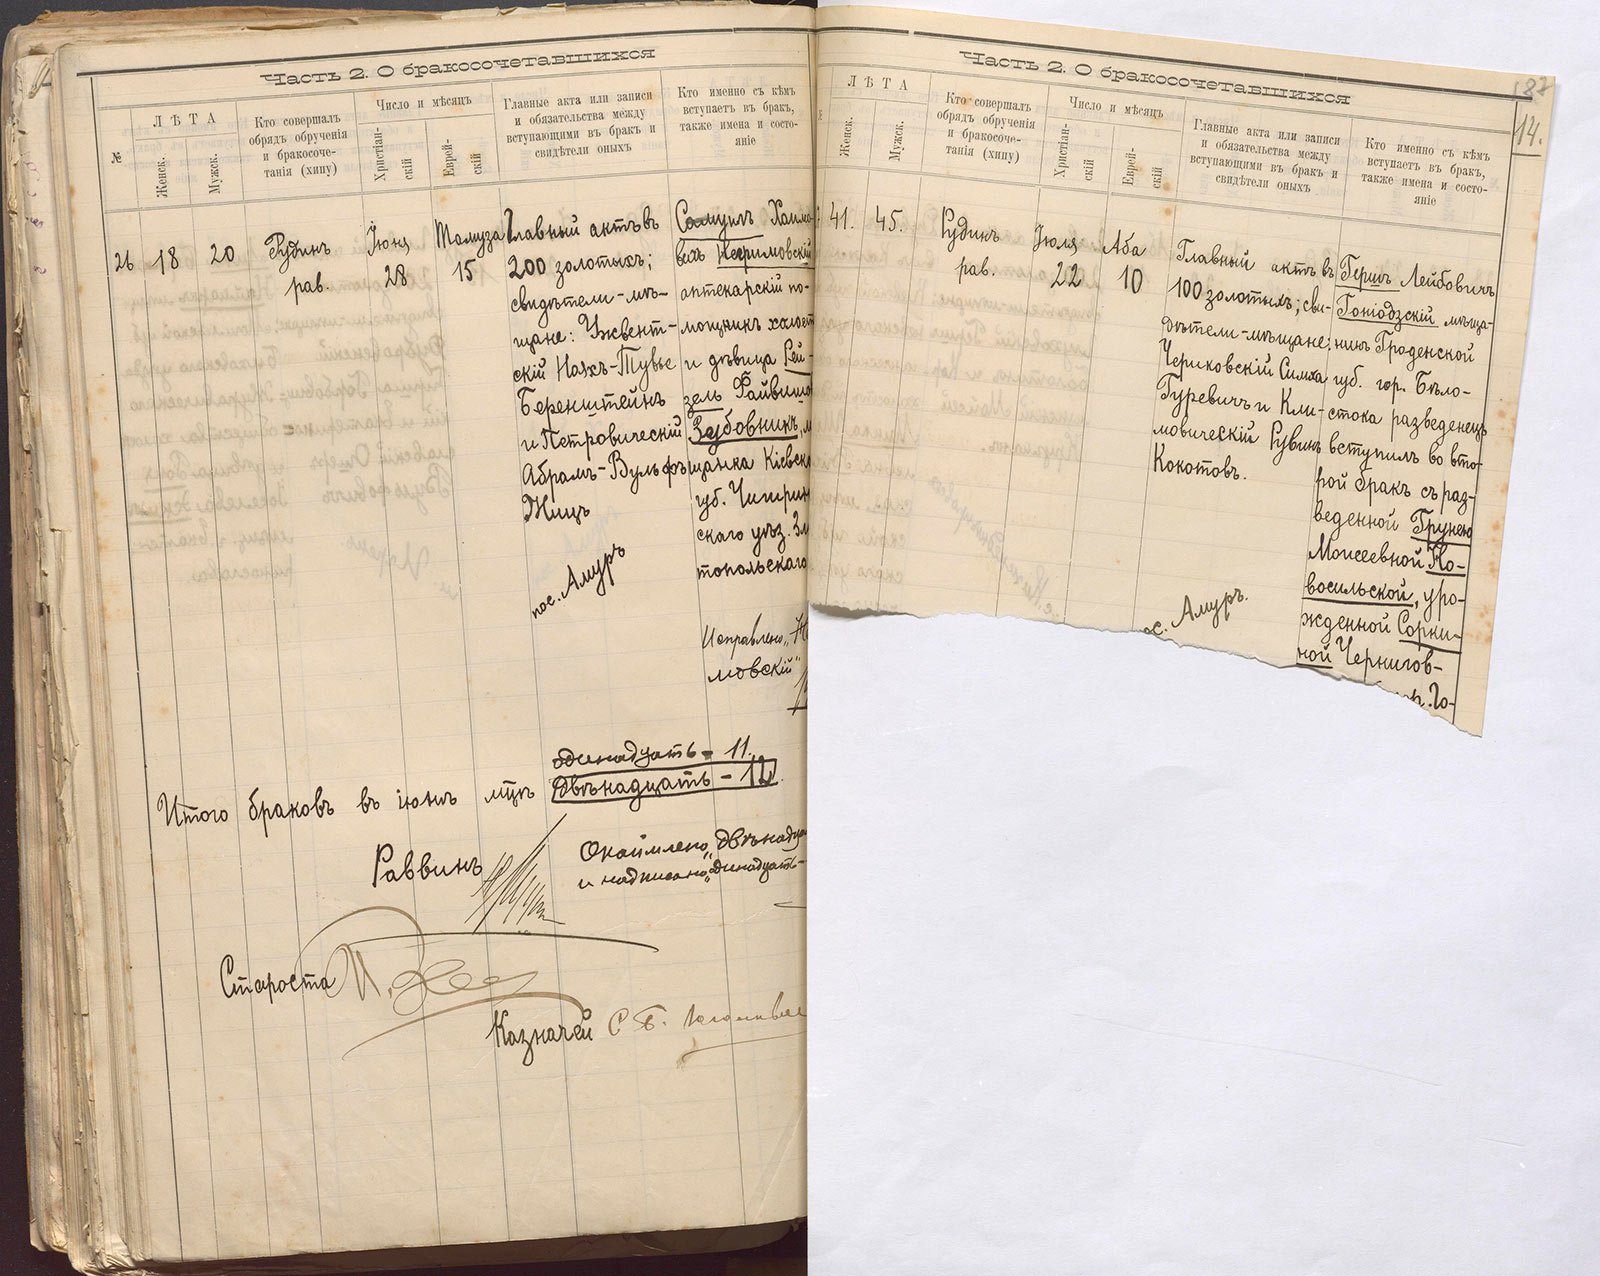 Часть 2. О бракосочетавшихся
№
ЛѢТА
Женск.
Мужск.
Кто совершалъ
обрядъ обрученія
и бракосоче-
танія (хипу)
Число и мѣсяцъ
Христіан-
скій
Еврей-
скій
Главные акта или записи
и обязательства между
вступающими въ бракъ и
свидѣтели оныхъ
Кто именно съ кѣмъ
вступаетъ въ бракъ,
также имена и состо-
яніе
26
18
20
Рудинъ
рав.
Іюня
28
Тамуза
15
Главный актъ въ
200 золотыхъ;
свидѣтели-мѣ-
щане: Ужвент-
скій Ноахъ-Тувье
Беренштейнъ
и Петровическій
Абрамъ-Вульфъ
Жицъ
пос. Амуръ
Самуилъ Хаимо
вичъ
аптекарскій по-
мощникъ холост
и дѣвица Рей-
зель Файвишо
Зубовникъ, м
щанка Кіевско
губ. Чигрин
скаго уѣз. Зла
топольскаго
Исправлено „
мовскій“
одинадцать - 11.
Итого браковъ въ іюнѣ мцѣ двѣнадцать - 12.
Раввинъ
Окаймлено „двѣнадца
и надписано „одинадцать-
Староста
Казначей
Часть 2. О бракосочетавшихся
187
14.
ЛѢТА
Женск.
Мужск.
Кто совершалъ
обрядъ обрученія
и бракосоче-
танія (хипу)
Число и мѣсяцъ
Христіан-
скій
Еврей-
скій
Главные акта или записи
и обязательства между
вступающими въ бракъ и
свидѣтели оныхъ
Кто именно съ кѣмъ
вступаетъ въ бракъ,
также имена и состо-
яніе
41.
45.
Рудинъ
рав.
Іюля
22
Аба
10
Главный актъ въ
100 золотыхъ; сви-
дѣтели-мѣщане:
Чериковскій Симха
Гуревичъ и Кли-
мовическій Рувинъ
Кокотовъ.
пос. Амуръ.
Гершъ Лейбовичъ
Гоніодзскій мѣща-
нинъ Гродненской
губ. гор. Бѣло-
стока разведенецъ
вступилъ во вто-
рой бракъ съ раз-
веденной Грунею
Моисеевной Но-
восильской, уро-
жденной Сорки-
ной Чернигов-
гор. Го-